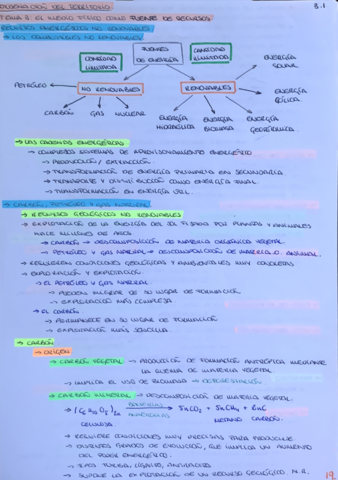 ORDENACIÓN DEL TERRITORIO
3.1
TEMA 3: EL MEDIO FÍSICO COMO FUENTE DE RECURSOS
RECURSOS ENERGÉTICOS NO RENOVABLES
→ LOS COMBUSTIBLES NO RENOVABLES
CANTIDAD LIMITADA
FUENTES DE ENERGÍA
CANTIDAD ILIMITADA
ENERGÍA SOLAR
PETRÓLEO
NO RENOVABLES
RENOVABLES
ENERGÍA EÓLICA
CARBÓN
GAS
NUCLEAR
ENERGÍA HIDRÁULICA
ENERGÍA BIOMASA
ENERGÍA GEOTÉRMICA
→ LAS CADENAS ENERGÉTICAS
→ COMPLEJOS SISTEMAS DE APROVISIONAMIENTO ENERGÉTICO
→ PRODUCCIÓN / EXTRACCIÓN
→ TRANSFORMACIÓN DE ENERGÍA PRIMARIA EN SECUNDARIA
→ TRANSPORTE Y DISTRIBUCIÓN COMO ENERGÍA FINAL
→ TRANSFORMACIÓN EN ENERGÍA ÚTIL
→ CARBÓN, PETRÓLEO Y GAS NATURAL
→ RECURSOS GEOLÓGICOS NO RENOVABLES
→ EXPLOTACIÓN DE LA ENERGÍA DEL SOL FIJADA POR PLANTAS Y ANIMALES
HACE MILLONES DE AÑOS
→ CARBÓN → DESCOMPOSICIÓN DE MATERIA ORGÁNICA VEGETAL
→ PETRÓLEO Y GAS NATURAL → DESCOMPOSICIÓN DE MATERIA O. ANIMAL
→ REQUIEREN CONDICIONES GEOLÓGICAS Y AMBIENTALES MUY CONCRETAS
→ EXPLORACIÓN Y EXPLOTACIÓN
→ EL PETRÓLEO Y GAS NATURAL
→ PUEDEN MIGRAR DE SU LUGAR DE FORMACIÓN
→ EXPLOTACIÓN MÁS COMPLEJA
→ EL CARBÓN
→ PERMANECE EN SU LUGAR DE FORMACIÓN
→ EXPLOTACIÓN MÁS SENCILLA
→ CARBÓN
→ ORIGEN
→ CARBÓN VEGETAL → PRODUCCIÓN DE FORMACIÓN ANTRÓPICA MEDIANTE
LA QUEMA DE MATERIA VEGETAL
→ IMPLICA EL USO DE BIOMASA → DEFORESTACIÓN
→ CARBÓN MINERAL → DESCOMPOSICIÓN DE MATERIA VEGETAL
→ (C6H10O5)2n → 5nCO2 + 5nCH4 + 2nC
BACTERIAS ANAERÓBICAS
CELULOSA
METANO
CARBÓN
→ REQUIERE CONDICIONES MUY PRECISAS PARA PRODUCIRSE
→ DISTINTOS GRADOS DE EVOLUCIÓN, QUE IMPLICA UN AUMENTO
DEL PODER ENERGÉTICO.
→ TIPOS: TURBA, LIGNITO, ANTRACITA
→ SUPONE LA EXPLOTACIÓN DE UN RECURSO GEOLÓGICO N.R.
19